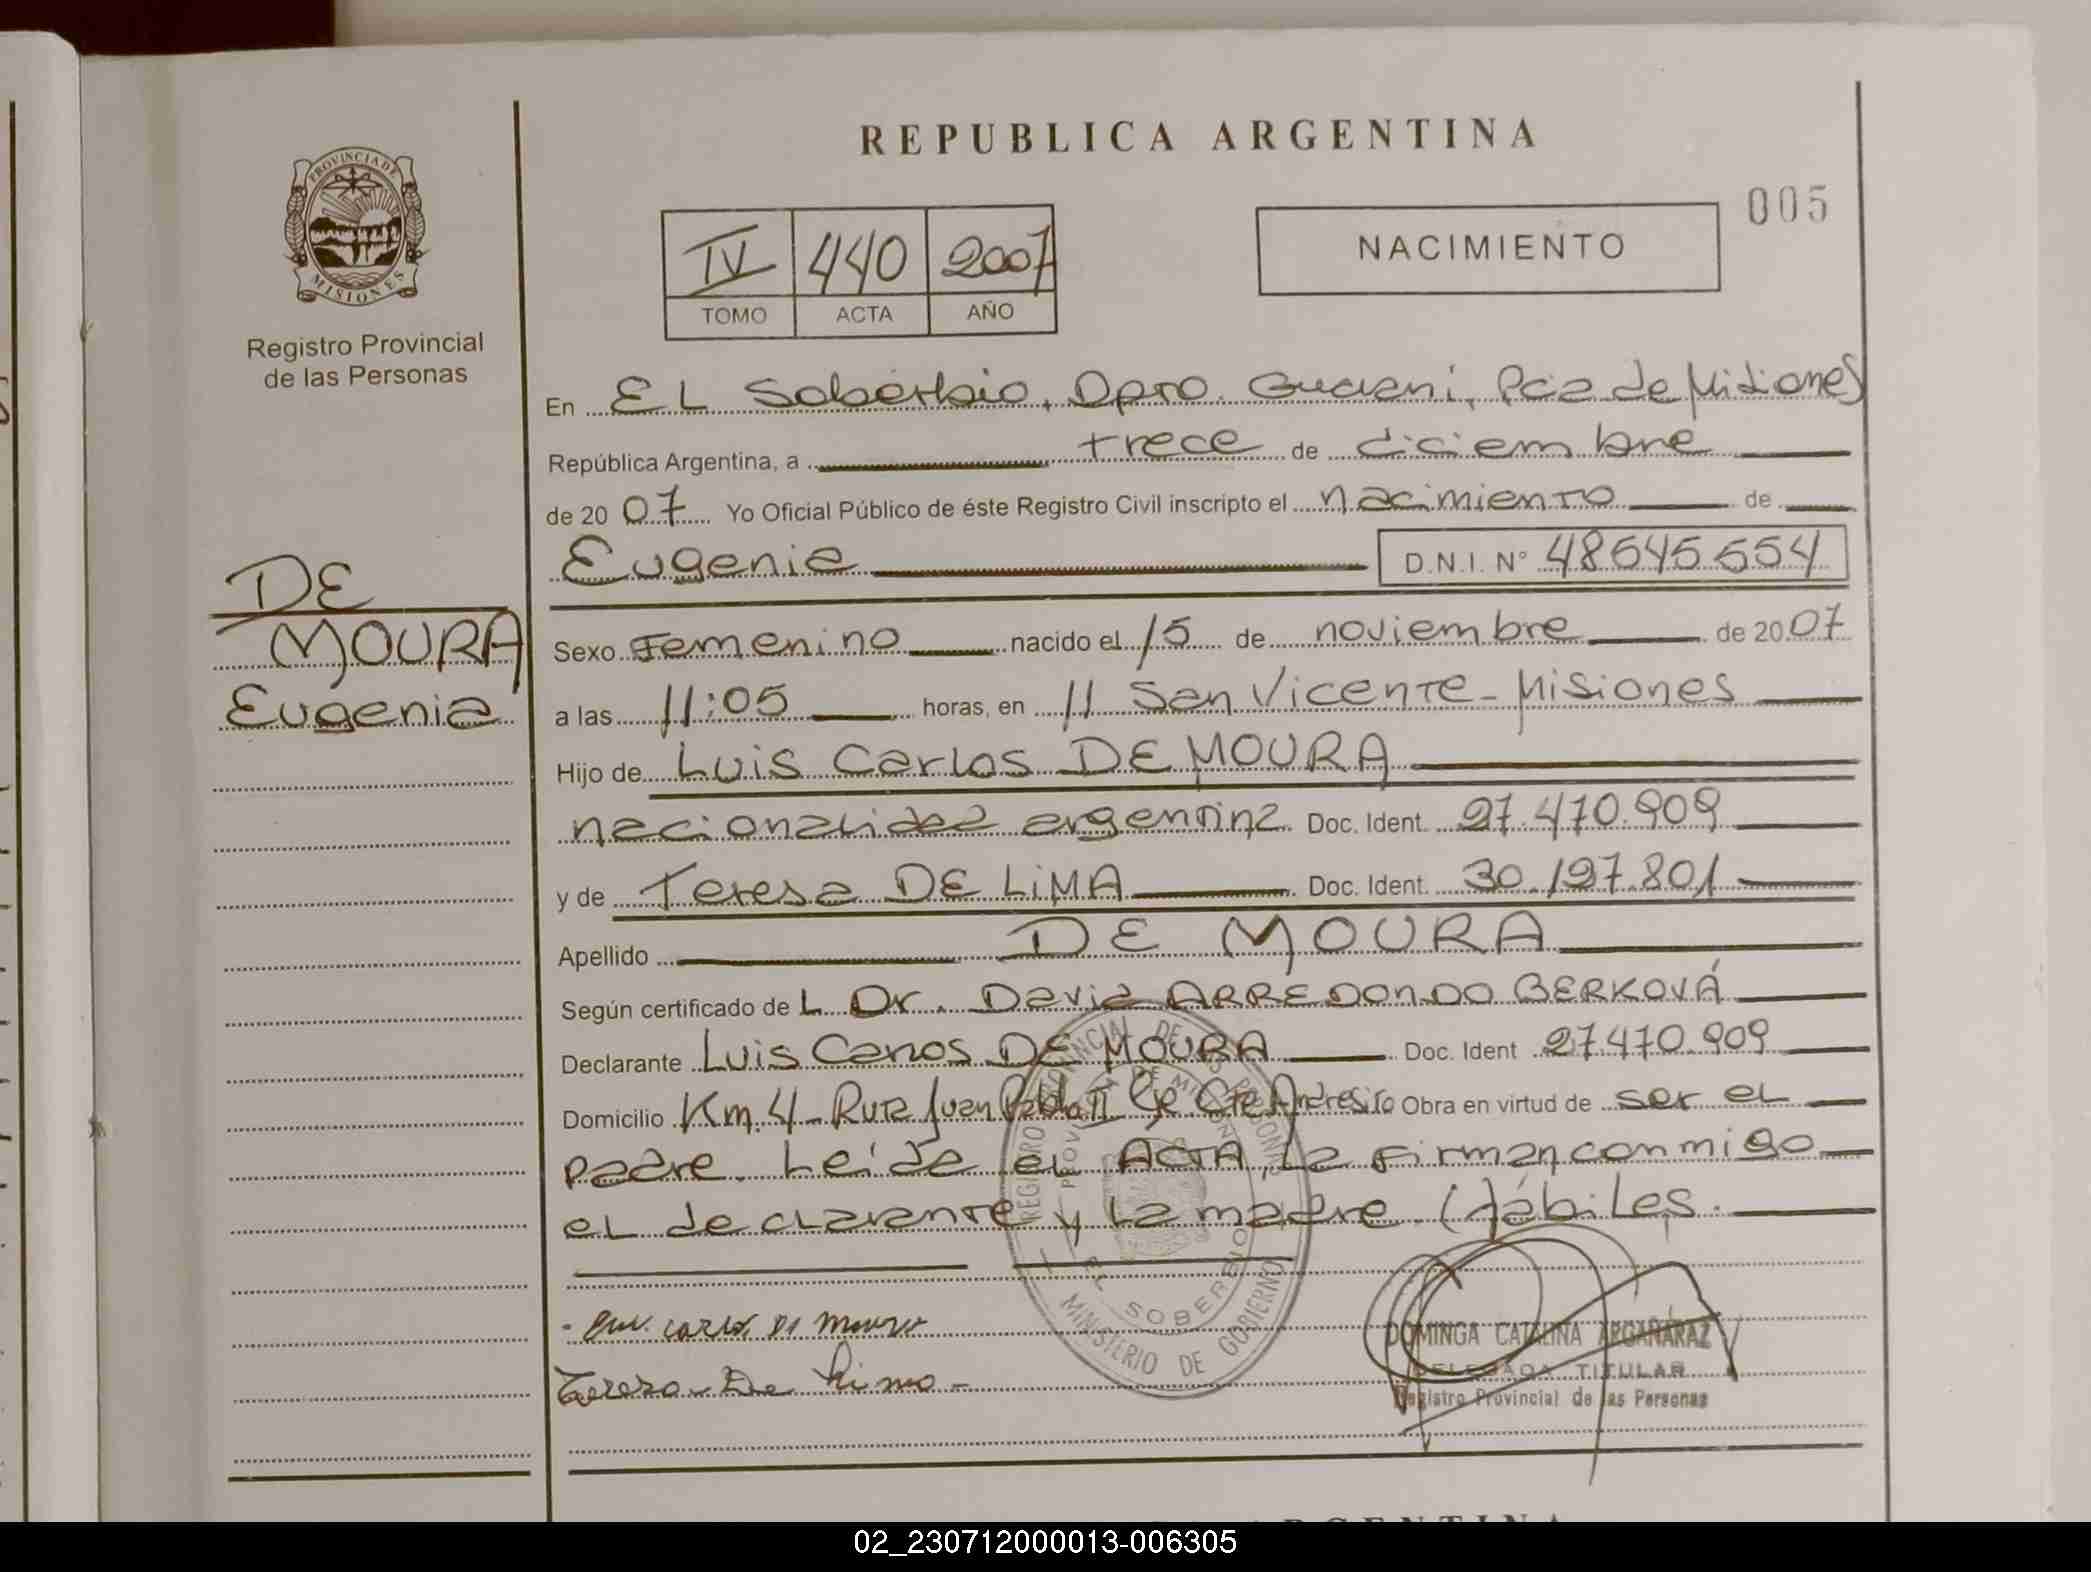 REPUBLICA ARGENTINA
005
NACIMIENTO
IV 440 2007
TOMO ACTA AÑO
PROVINCIA DE
MISIONES
Registro Provincial
de las Personas
DE
MOURA
Eugenia
En EL Soberbio, Dpto. Guaraní, Pcia de Misiones
República Argentina, a trece de diciembre
de 2007 Yo Oficial Público de éste Registro Civil inscripto el nacimiento de
Eugenia D.N.I. Nº 48545554
Sexo Femenino nacido el 15 de noviembre de 2007
a las 11:05 horas, en 11 San Vicente - Misiones
Hijo de Luis Carlos DE MOURA
nacionalidad argentina Doc. Ident. 27.470.909
y de Teresa DE LiMA Doc. Ident. 30.197.801
Apellido DE MOURA
Según certificado de L Dr. David ARREDONDO BERKOVÁ
Declarante Luis Carlos DE MOURA Doc. Ident 27.470.909
Domicilio Km. 4 - Ruta Juan Pablo II Cte Andresito Obra en virtud de ser el
padre. Leída el ACTA, la firman conmigo
el declarante y la madre. Hábiles.
Carlos De Moura
Teresa De Lima -
REGISTRO PROVINCIAL DE LAS PERSONAS
PROVINCIA DE MISIONES
EL SOBERBIO
MINISTERIO DE GOBIERNO
DOMINGA CATALINA ARGAÑARAZ
DELEGADA TITULAR
Registro Provincial de las Personas
ARGENTINA
02_230712000013-006305